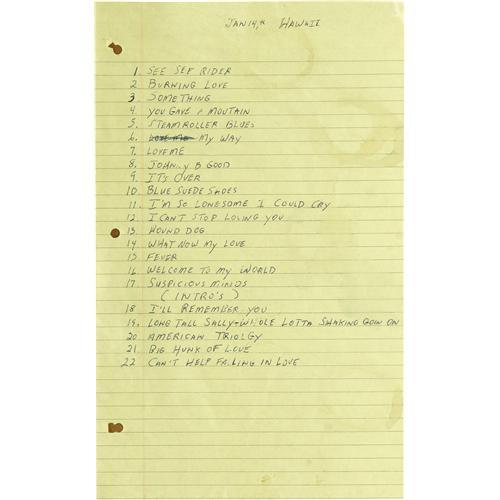 JAN 14, HAWAII
1. SEE SEE RIDER
2 BURNING LOVE
3 SOMETHING
4. YOU GAVE A MOUTAIN
5. STEAMROLLER BLUES
6. LOVE ME MY WAY
7. LOVE ME
8. JOHNNY B GOOD
9. IT'S OVER
10. BLUE SUEDE SHOES
11. I'M SO LONESOME I COULD CRY
12. I CAN'T STOP LOVING YOU
13. HOUND DOG
14 WHAT NOW MY LOVE
15 FEVER
16 WELCOME TO MY WORLD
17 SUSPICIOUS MINDS
(INTRO'S)
18 I'LL REMEMBER YOU
19. LONG TALL SALLY-WHOLE LOTTA SHAKING GOIN ON
20. AMERICAN TRIOLGY
21. BIG HUNK OF LOVE
22 CAN'T HELP FALLING IN LOVE